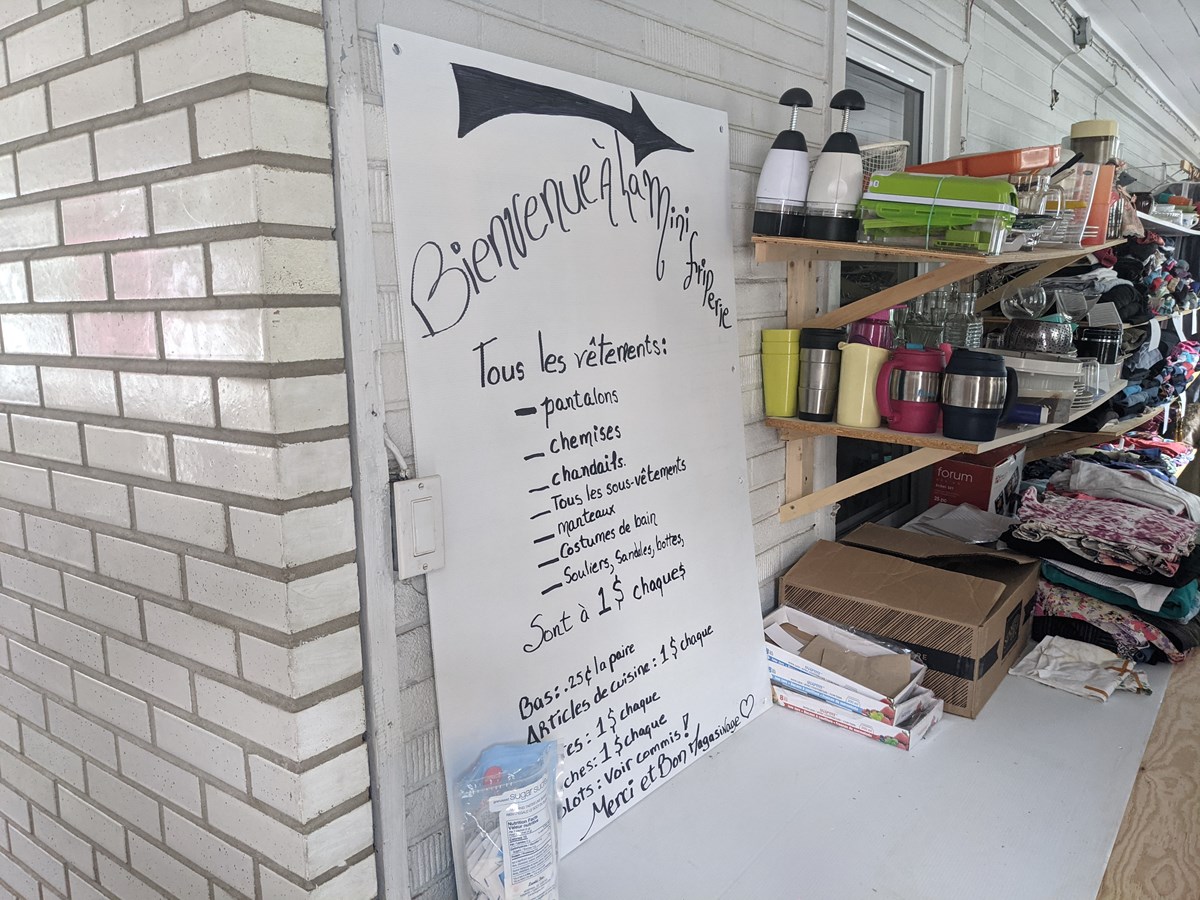 Bienvenue À la Mini friperie
Tous les vêtements:
- pantalons
- chemises
- chandails.
- Tous les sous-vêtements
- manteaux
- Costumes de bain
- Souliers, sandales, bottes,
Sont à 1$ chaques
Bas: .25¢ la paire
Articles de cuisine: 1$ chaque
res: 1$ chaque
ches: 1$ chaque
lots: Voir commis!
Merci et Bon Magasinage ♡
forum
sugar
Nutrition Facts
Valeur nutritive